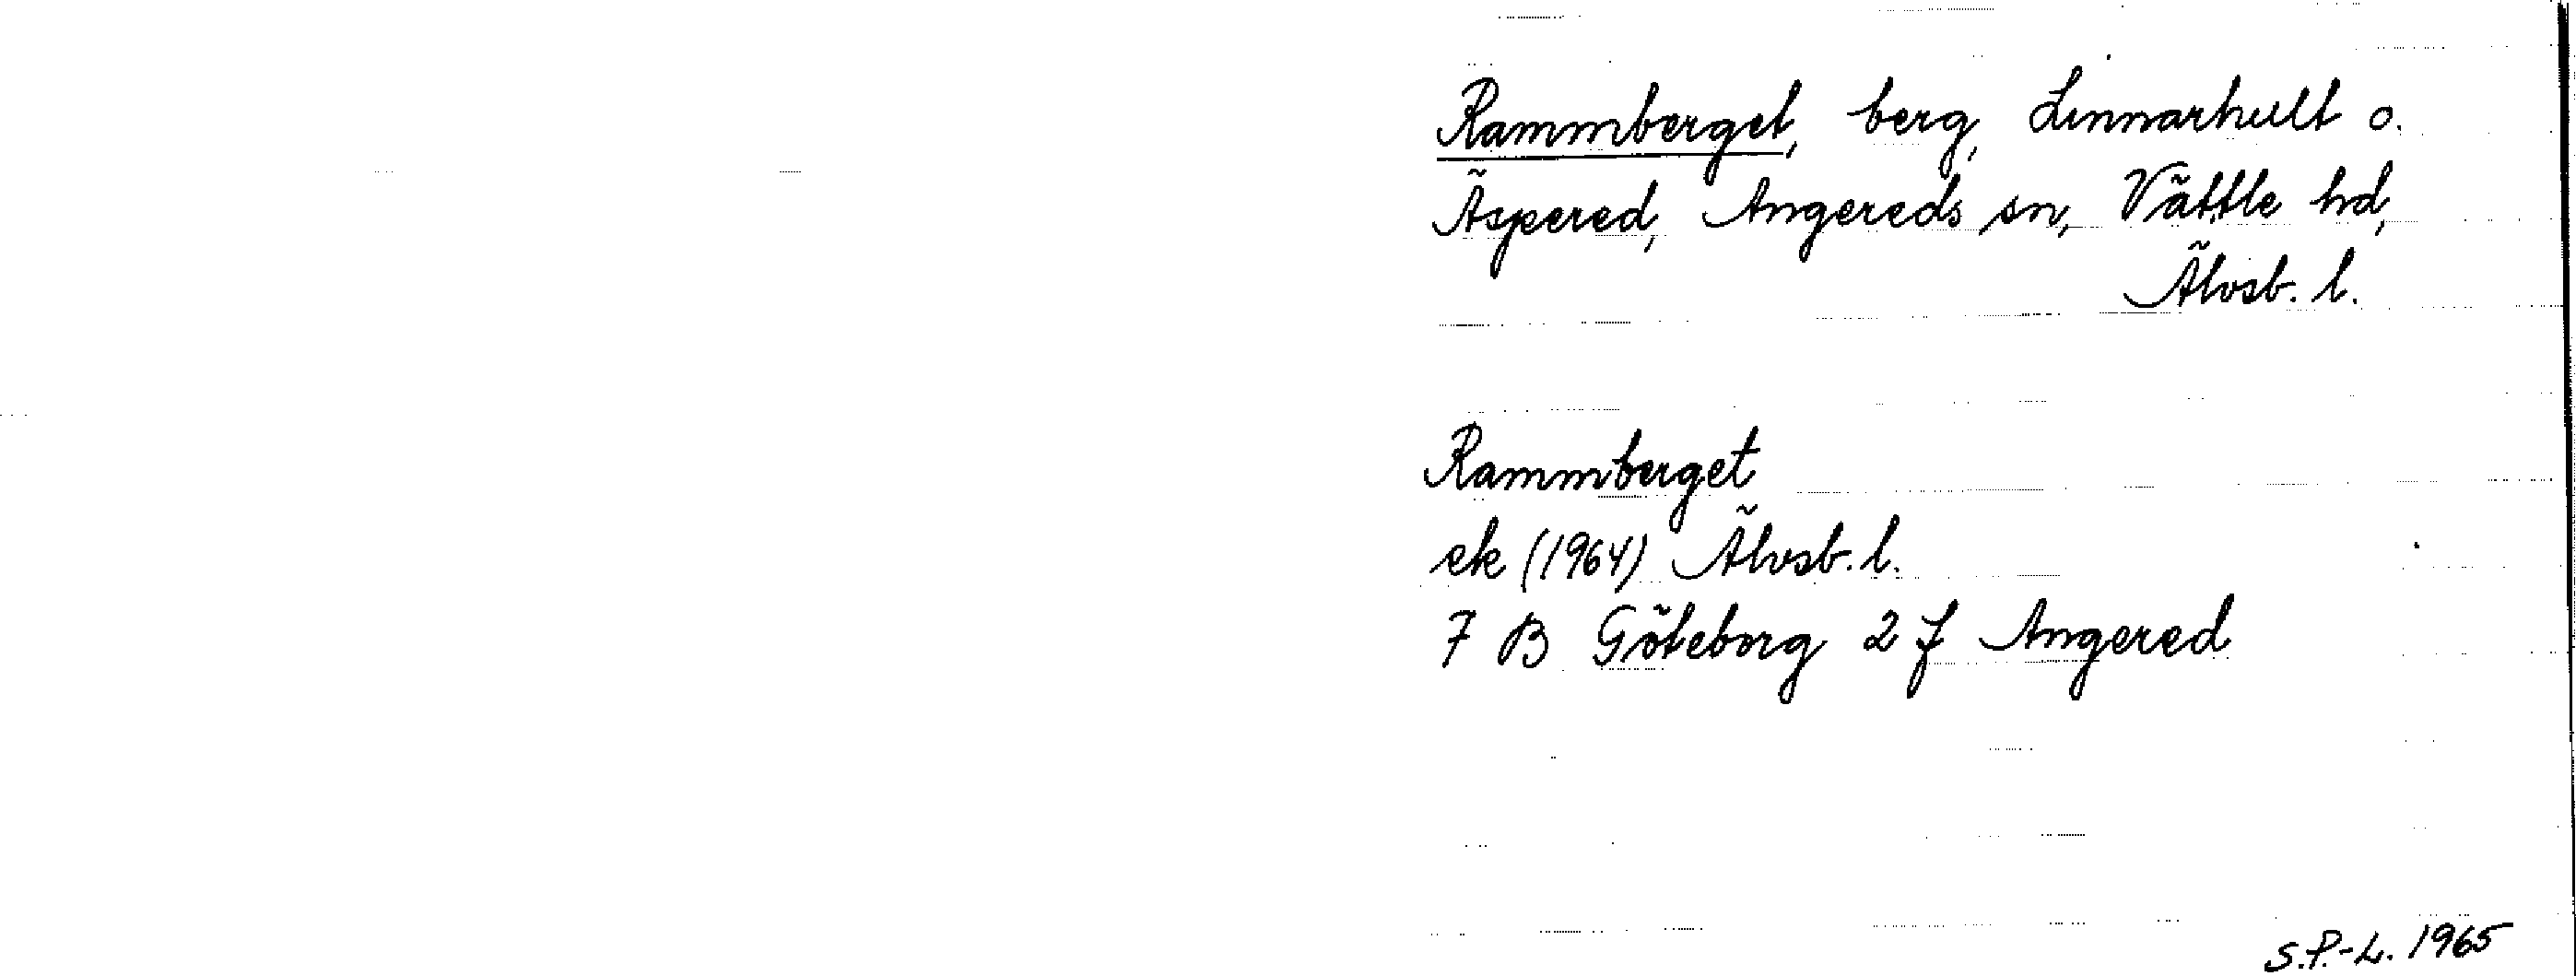 Rammberget, berg, Linnarhult o.
Äspered, Angereds sn, Vättle hd,
Älvsb. l.
Rammberget
ek (1964) Älvsb. l.
7 B Göteborg 2 f Angered
S.P.-L. 1965